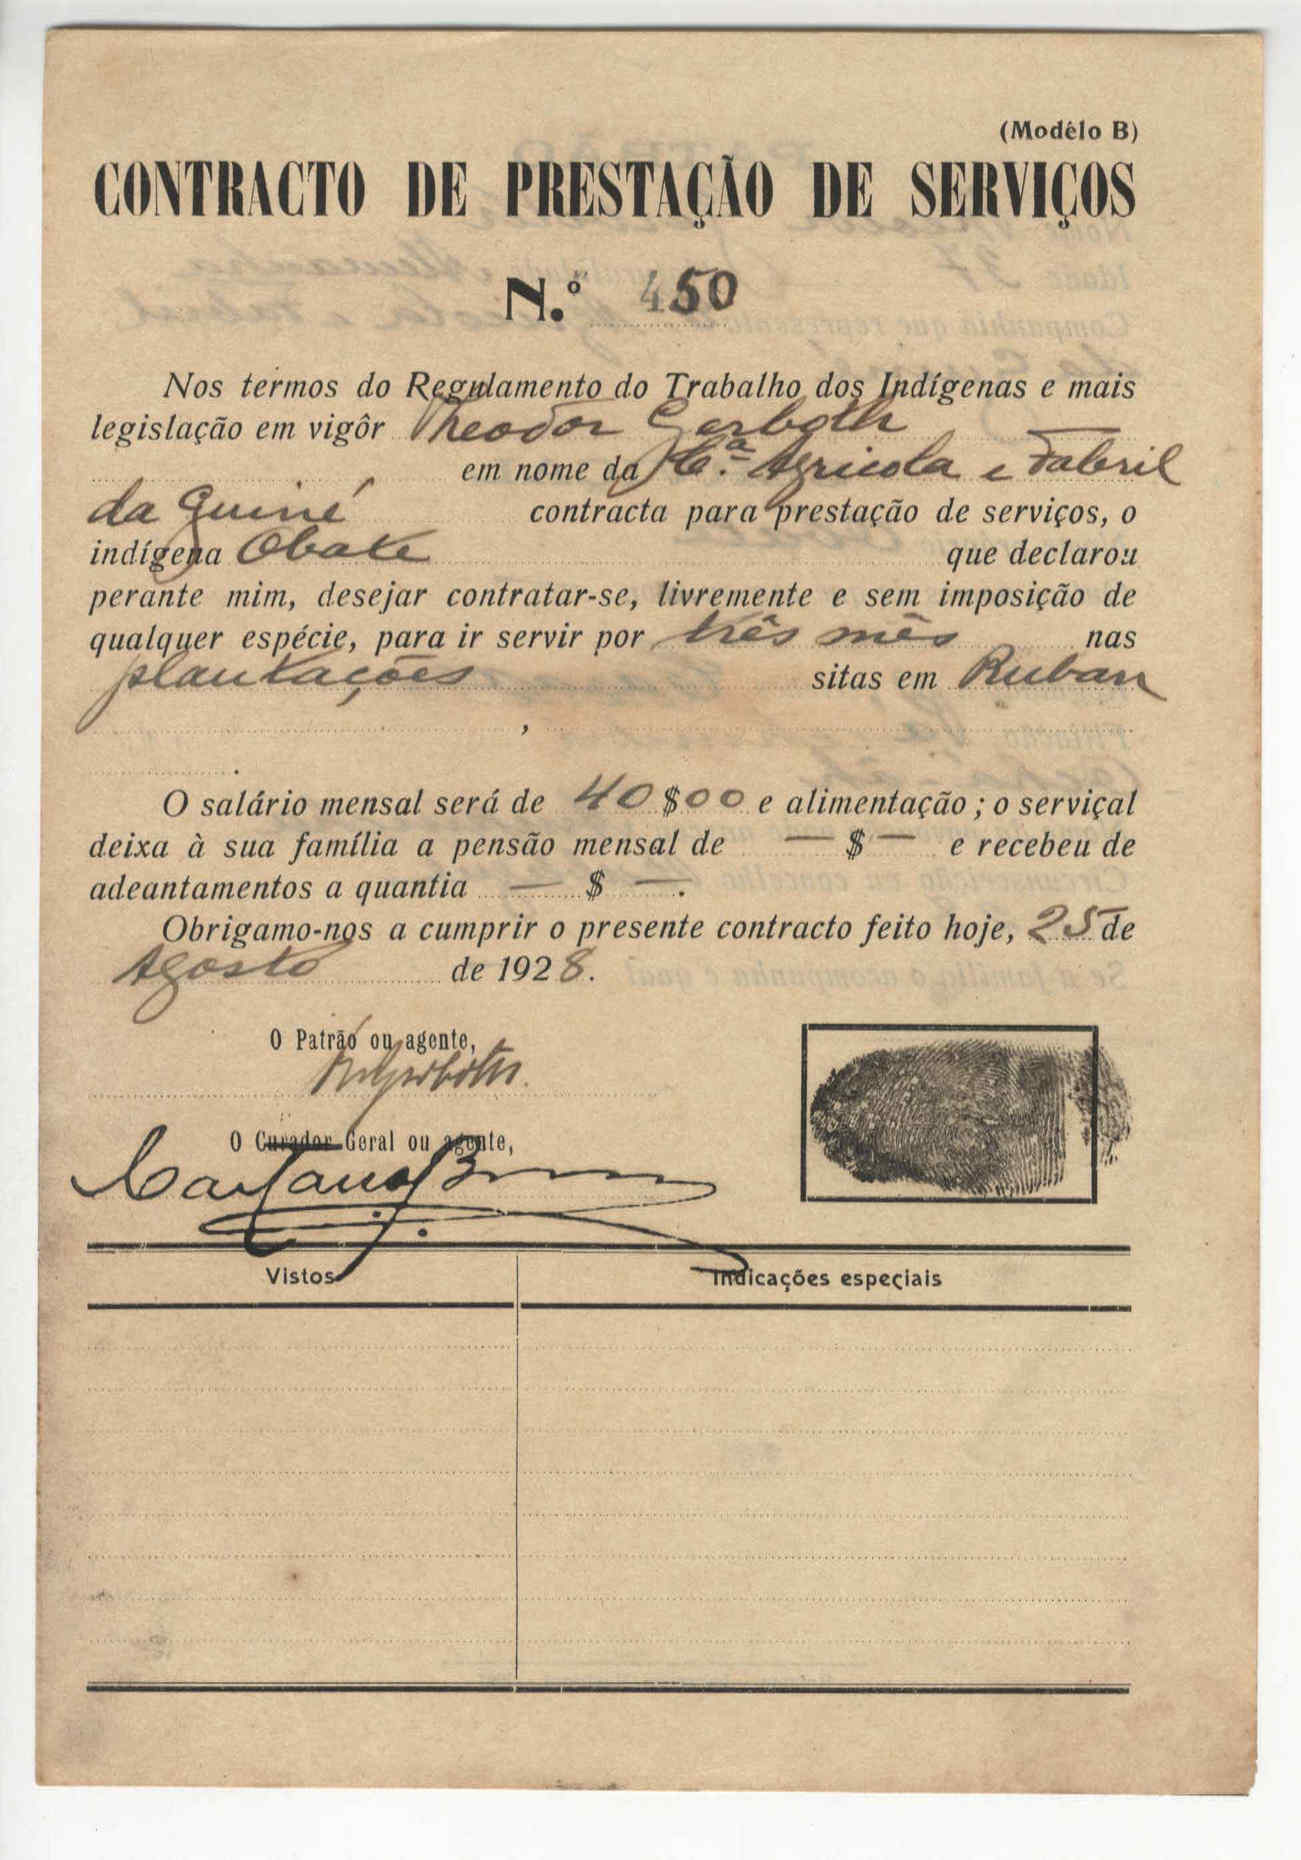 (Modêlo B)
CONTRACTO DE PRESTAÇÃO DE SERVIÇOS
N.º 450
Nos termos do Regulamento do Trabalho dos Indígenas e mais
legislação em vigôr Theodor Gerboth
em nome da Cª. Agricola e Fabril
da Guiné contracta para prestação de serviços, o
indígena Obate que declarou
perante mim, desejar contratar-se, livremente e sem imposição de
qualquer espécie, para ir servir por três mês nas
plantações sitas em Ruban
,
.
O salário mensal será de 40$00 e alimentação; o serviçal
deixa à sua família a pensão mensal de — $ — e recebeu de
adeantamentos a quantia — $ —.
Obrigamo-nos a cumprir o presente contracto feito hoje, 25 de
Agosto de 1928.
O Patrão ou agente,
Gerboth
O Curador Geral ou agente,
Caetano
Vistos
Indicações especiais